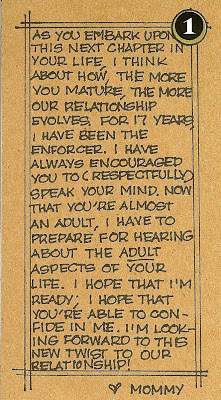 1
AS YOU EMBARK UPON
THIS NEXT CHAPTER IN
YOUR LIFE, I THINK
ABOUT HOW, THE MORE
YOU MATURE, THE MORE
OUR RELATIONSHIP
EVOLVES. FOR 17 YEARS,
I HAVE BEEN THE
ENFORCER. I HAVE
ALWAYS ENCOURAGED
YOU TO (RESPECTFULLY)
SPEAK YOUR MIND. NOW
THAT YOU'RE ALMOST
AN ADULT, I HAVE TO
PREPARE FOR HEARING
ABOUT THE ADULT
ASPECTS OF YOUR
LIFE. I HOPE THAT I'M
READY; I HOPE THAT
YOU'RE ABLE TO CON-
FIDE IN ME. I'M LOOK-
ING FORWARD TO THIS
NEW TWIST TO OUR
RELATIONSHIP!
♡ MOMMY